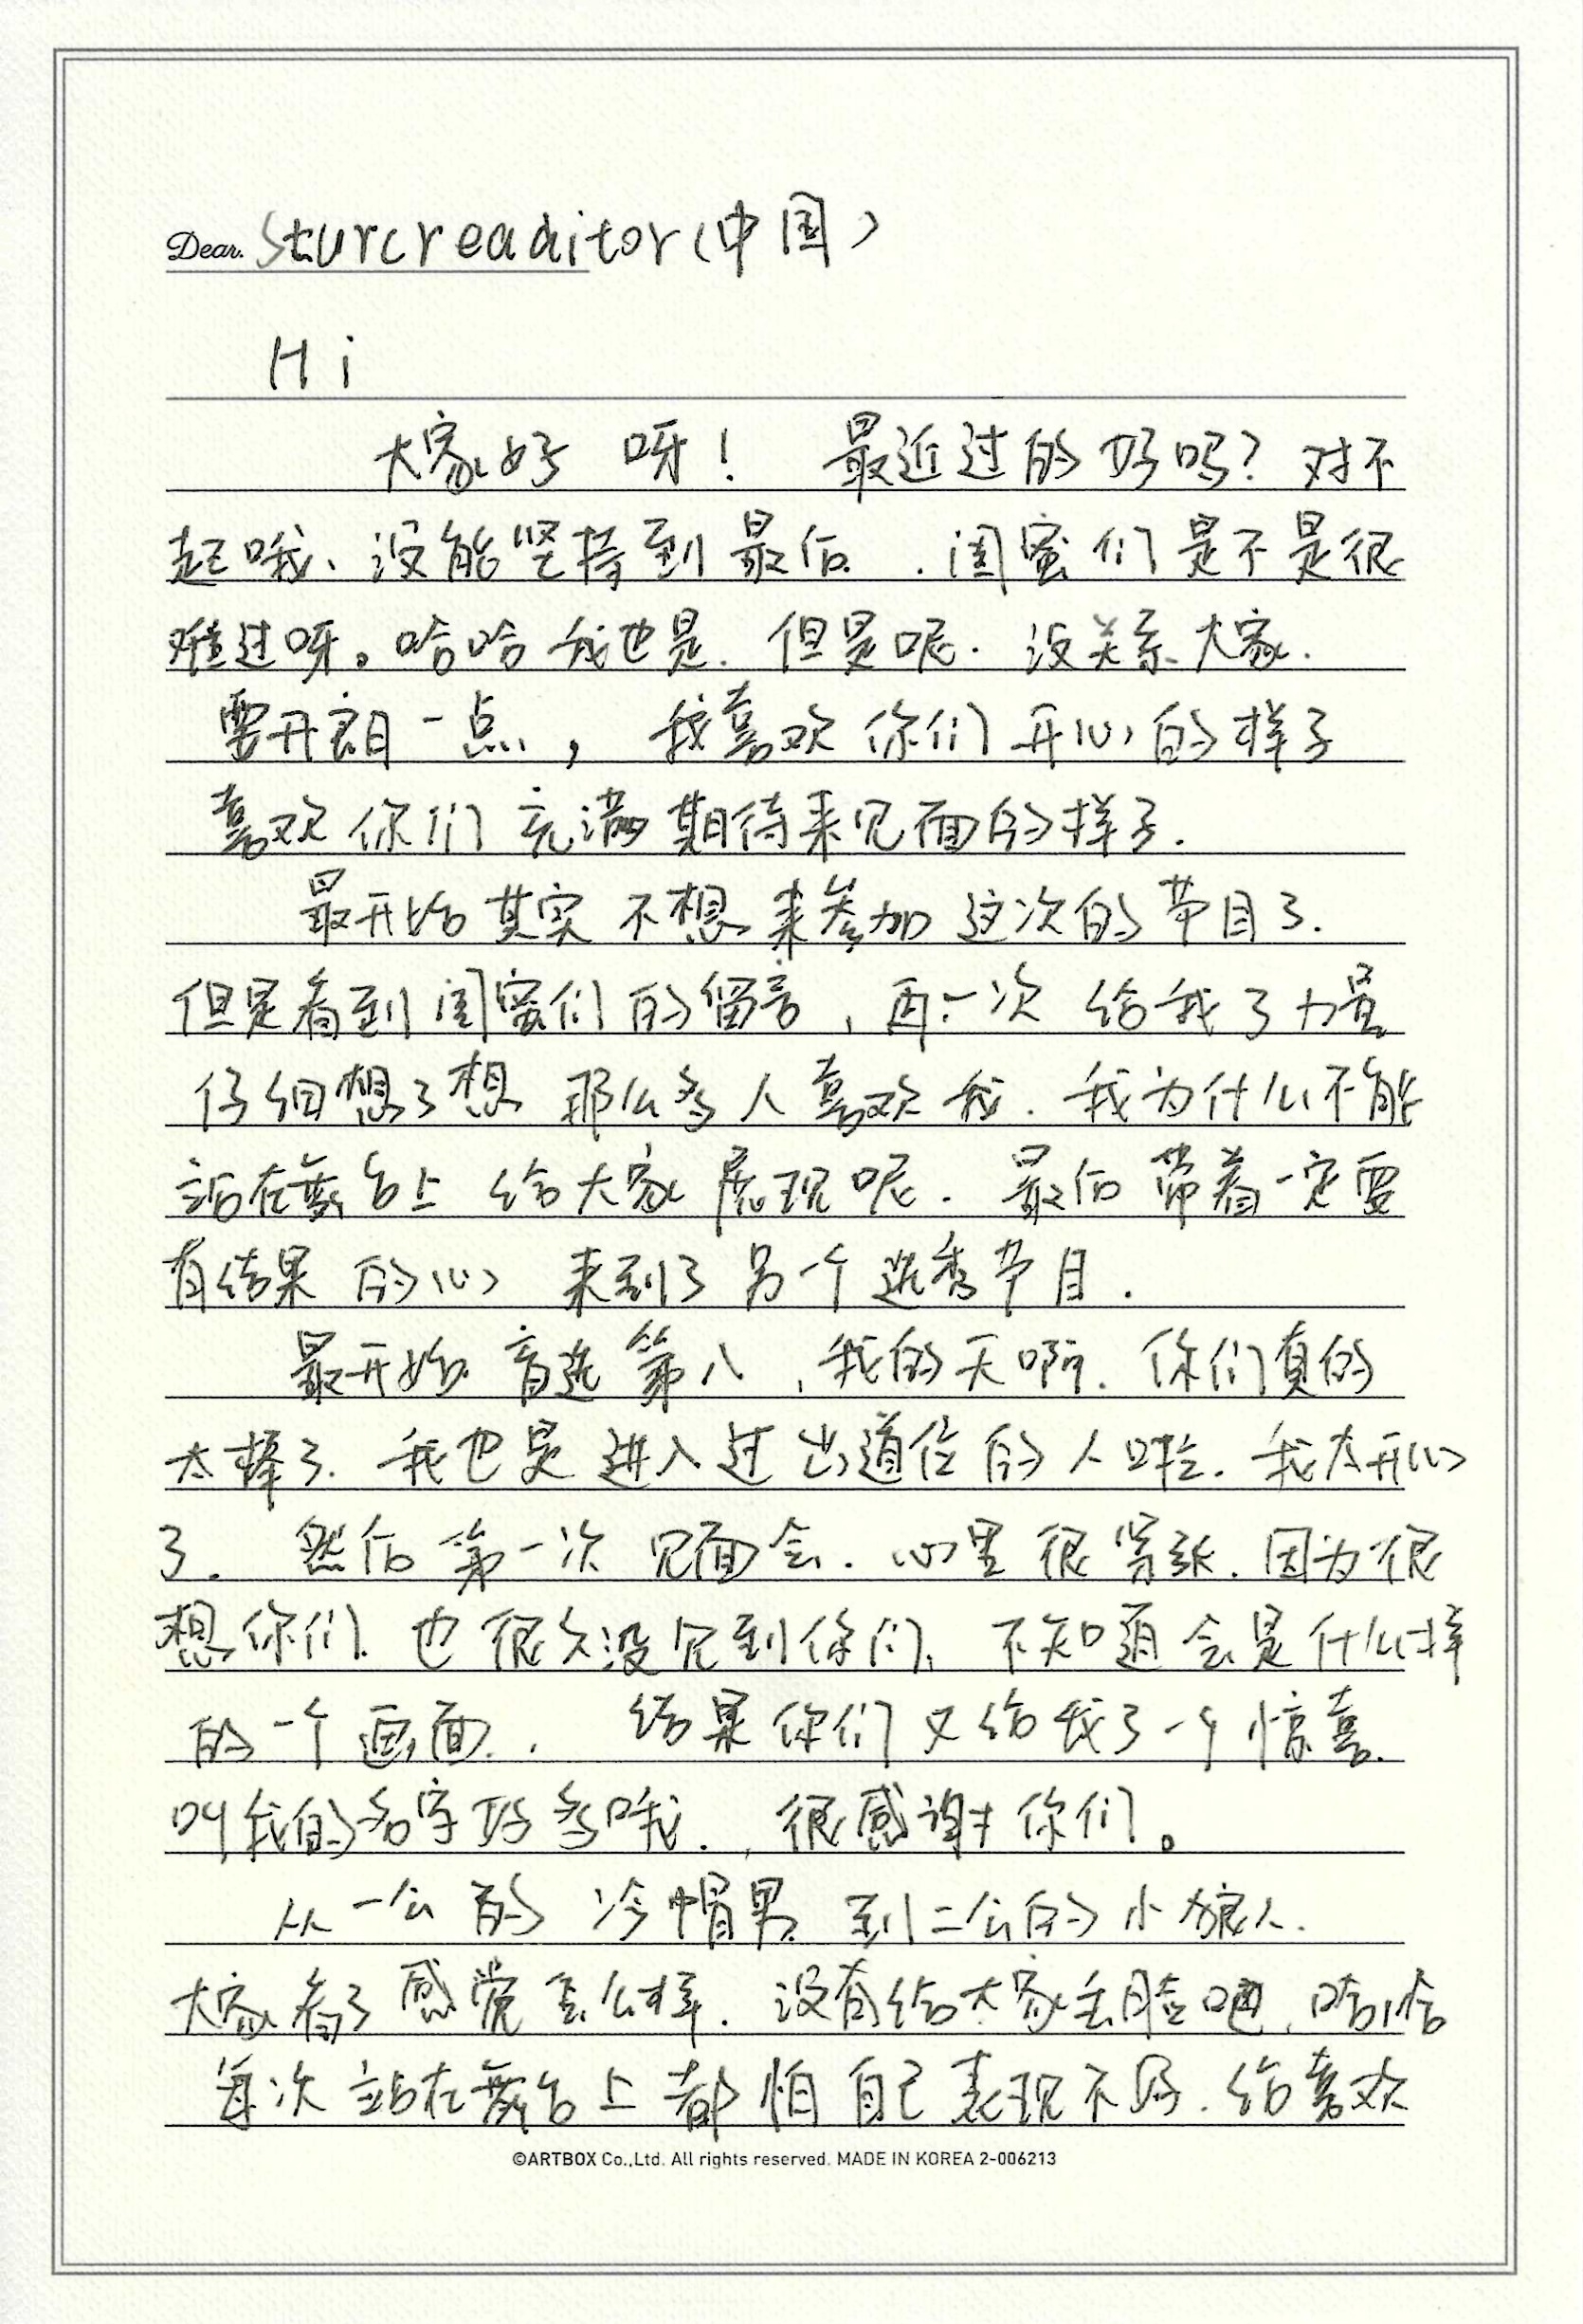 Dear. Sturcreaditor(中国)
Hi
大家好 呀! 最近过的好吗? 对不
起哦、没能坚持到最后. . 闺蜜们是不是很
难过呀。哈哈 我也是. 但是呢. 没关系 大家.
要开朗一点, 我喜欢你们开心的样子
喜欢你们充满期待来见面的样子.
最开始其实不想来参加这次的节目了.
但是看到闺蜜们的留言, 再一次 给我了力量
仔细想了想 那么多人喜欢我. 我为什么不能
站在舞台上 给大家展现呢. 最后带着一定要
有结果 的心 来到了另一个选秀节目.
最开始 首选第八, 我的天啊. 你们真的
太棒了. 我也是进入过出道位的人啦. 我太开心
了. 然后第一次 见面会. 心里很紧张. 因为很
想你们. 也很久没见到你们, 不知道会是什么样
的一个画面. . 结果你们又给我了一个惊喜.
叫我的名字好多哦. , 很感谢你们。
从一公的 冷帽男 到二公的小狼人.
大家看了感觉怎么样. 没有给大家丢脸吧, 哈哈
每次站在舞台上都怕自己表现不好. 给喜欢
©ARTBOX Co.,Ltd. All rights reserved. MADE IN KOREA 2-006213